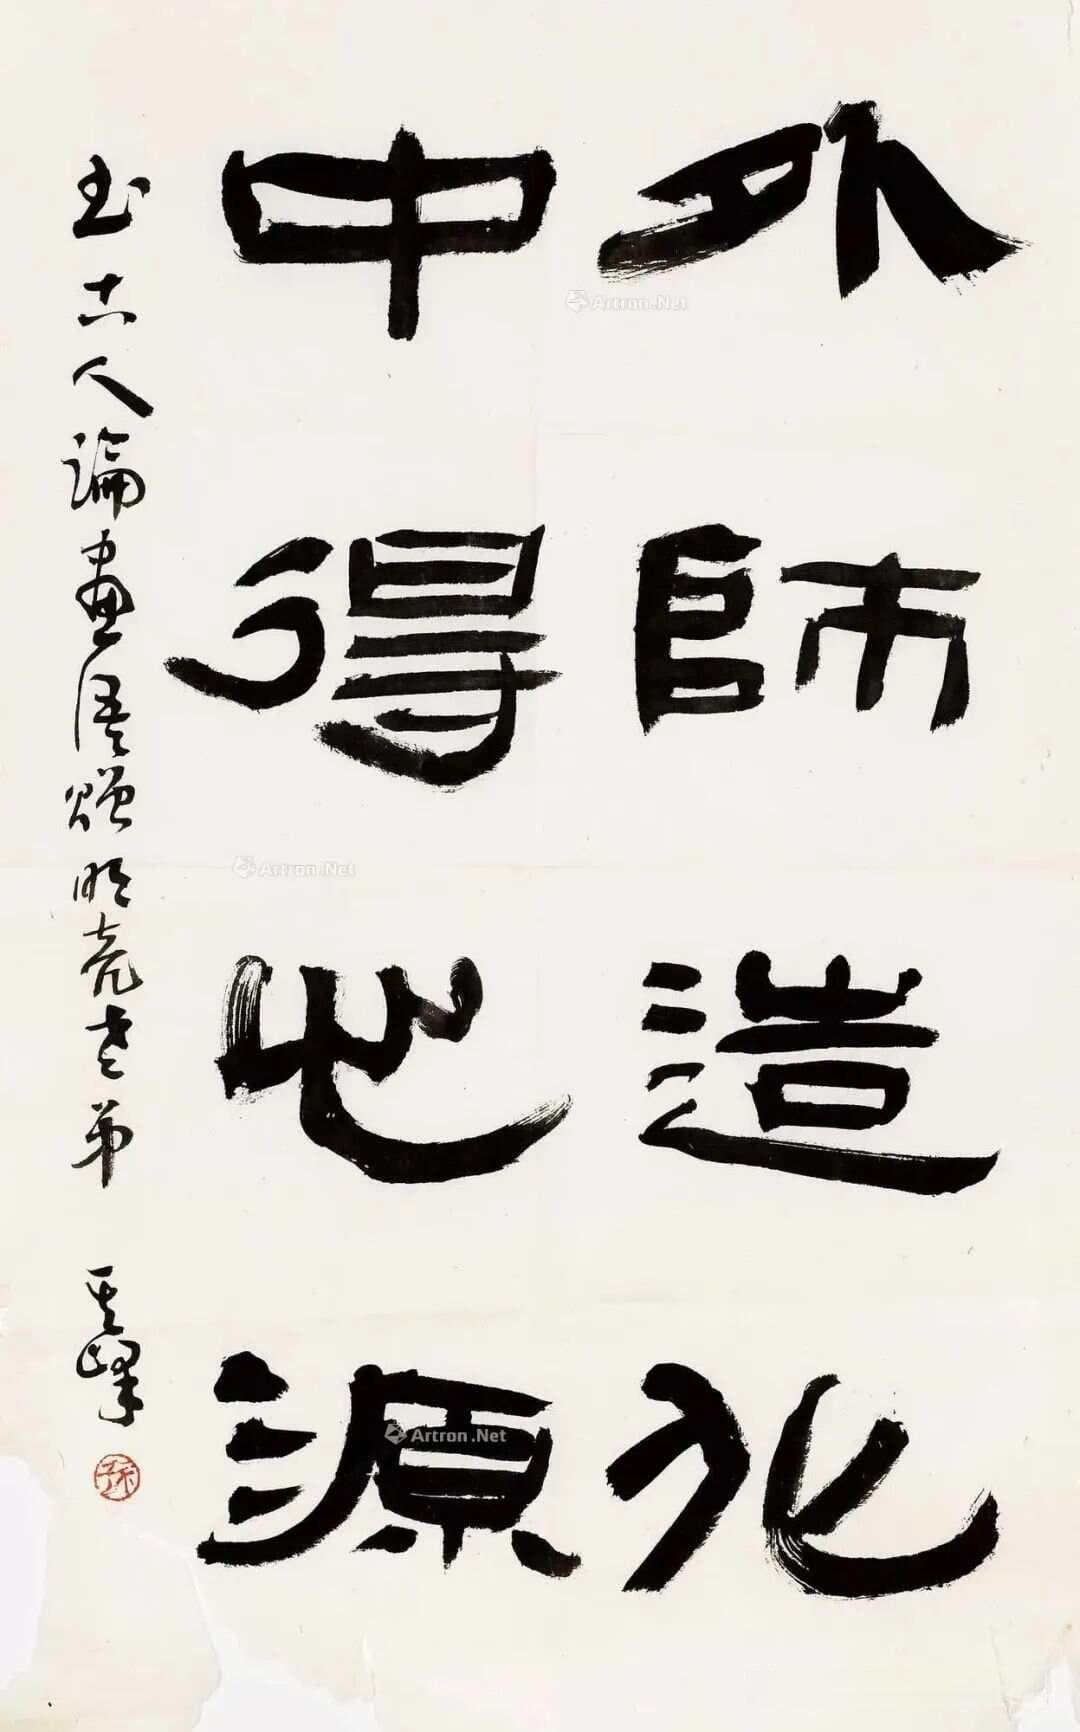 外師造化
中得心源
书古人論畫語贈明亮老弟
其峰
孫
Artron.Net
Artron.Net
Artron.Net